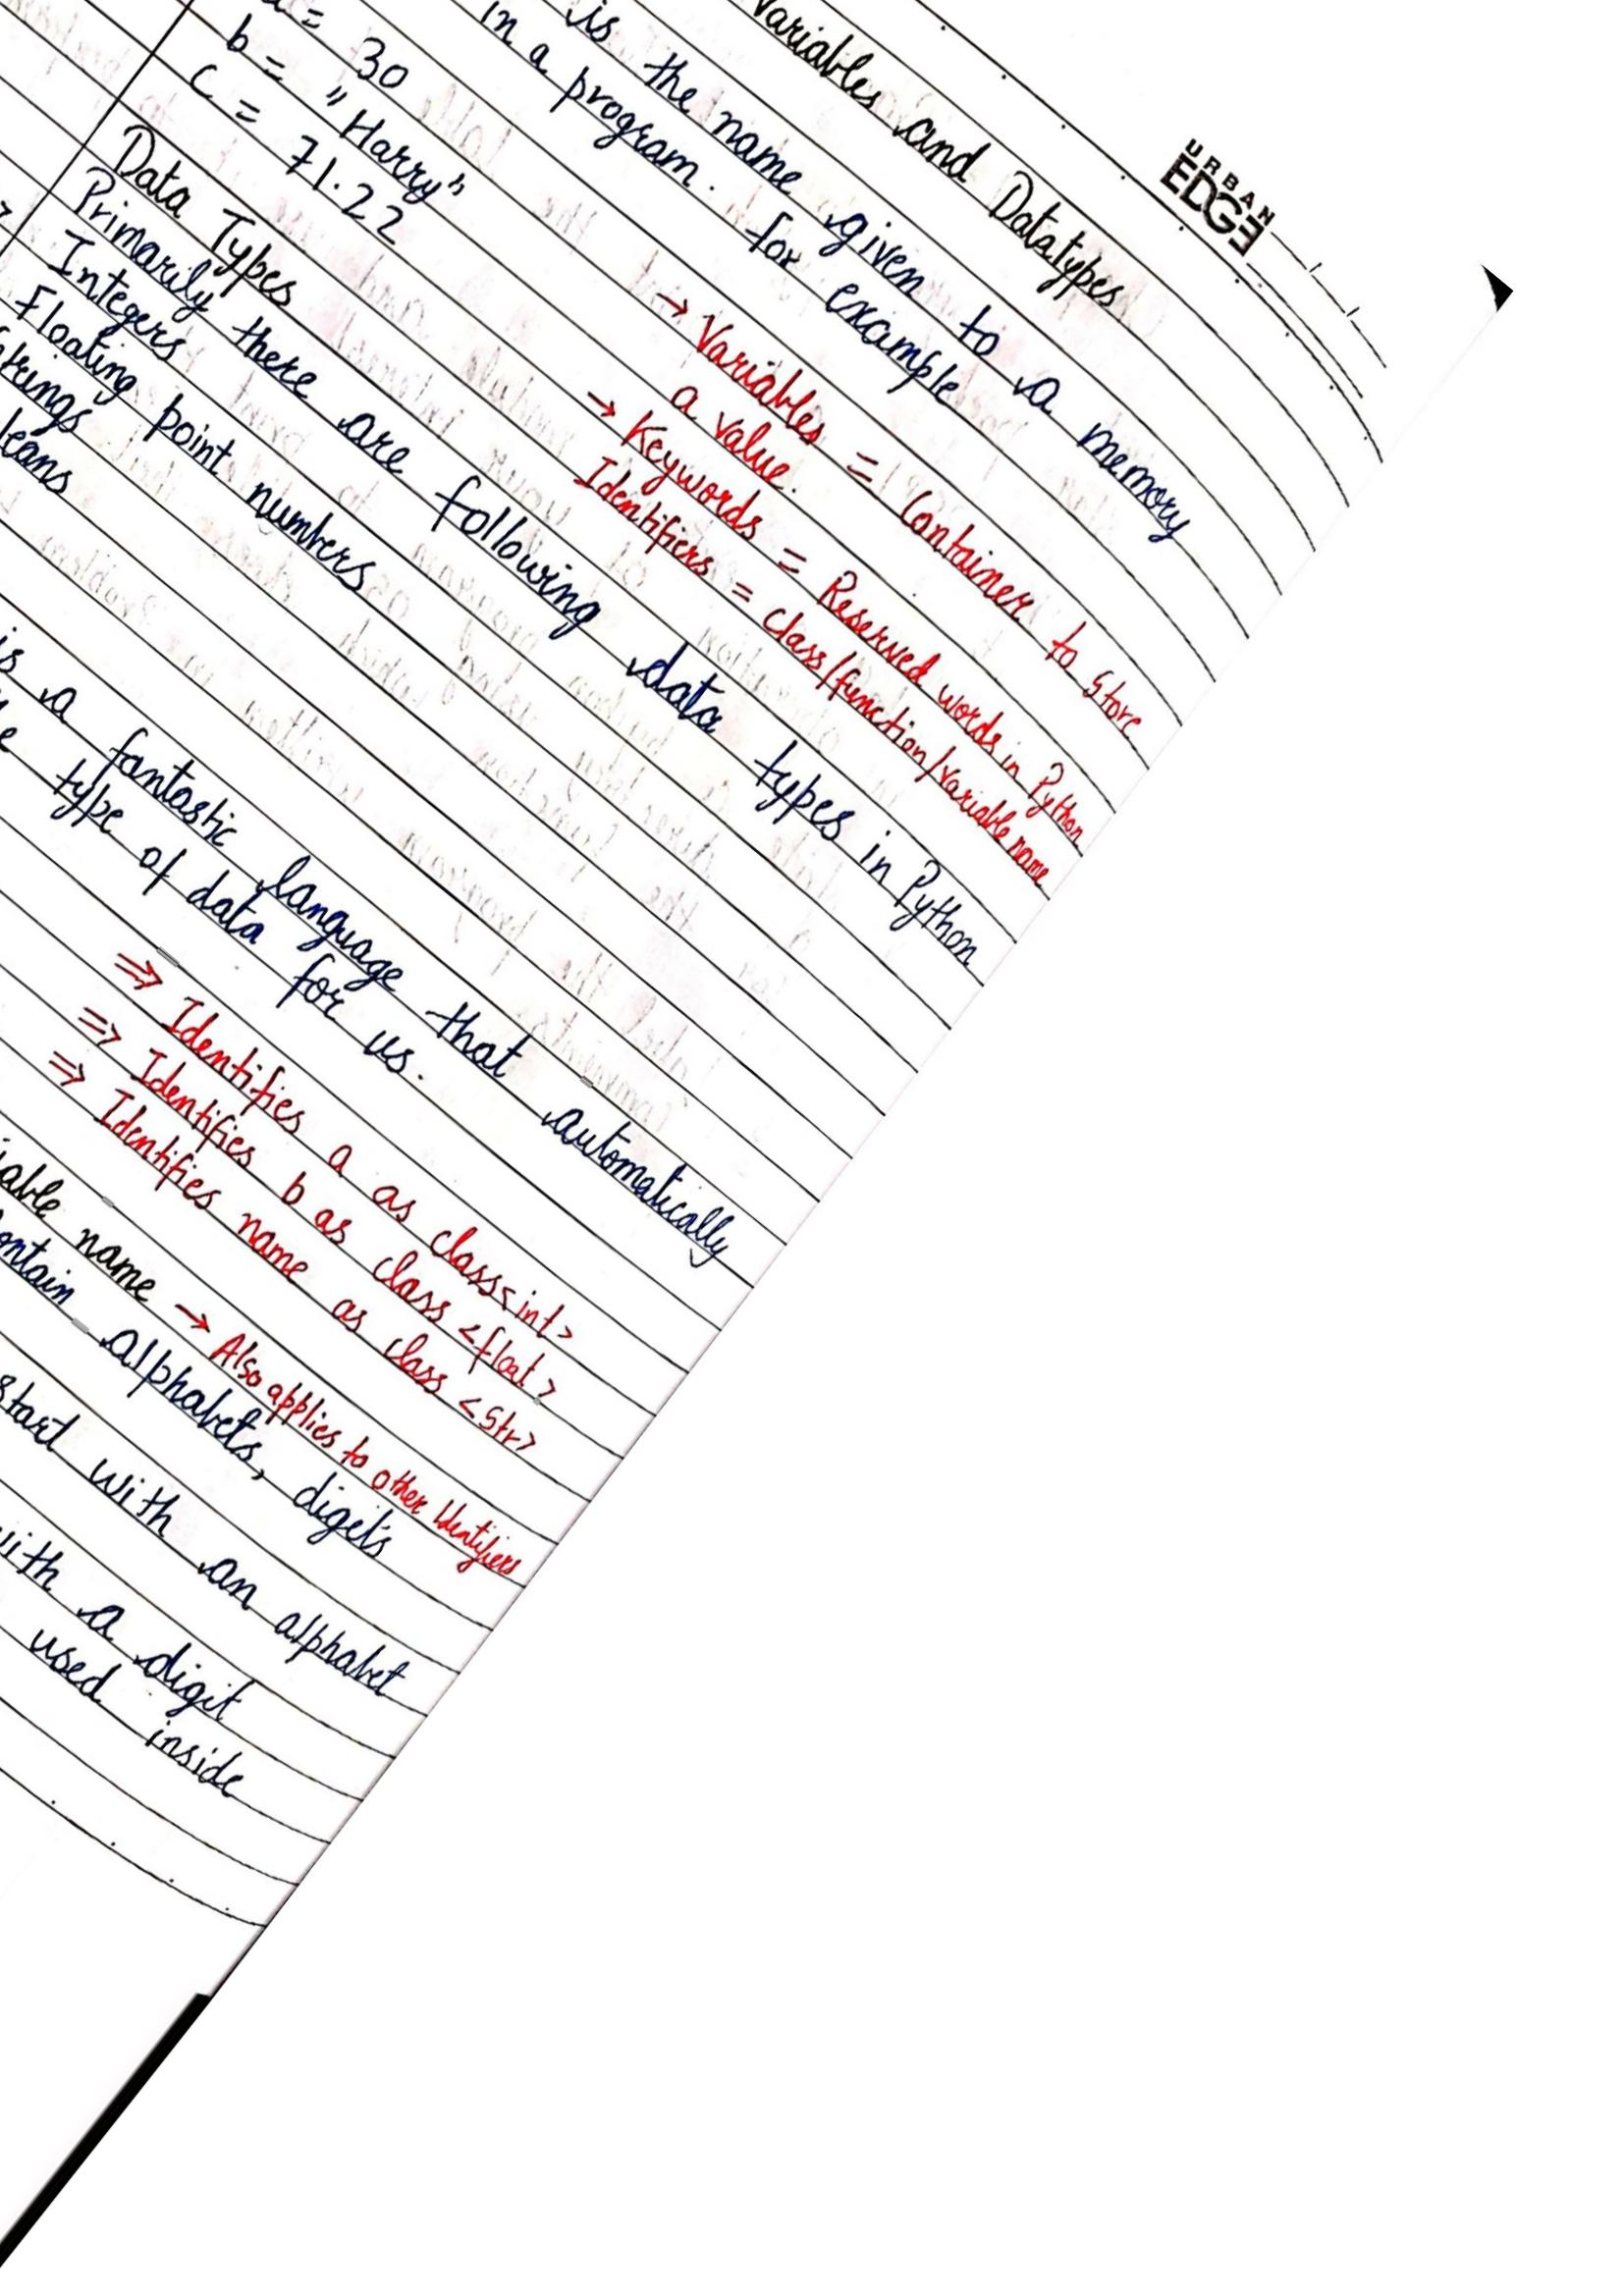 URBAN
EDGE
Variables and Datatypes
is the name given to a memory
in a program. for example
= 30
b = "Harry"
c = 71.22
→ Variables = Container to Store
a value.
→ Keywords = Reserved words in Python
Identifiers = class/function/variable name
Data Types
Primarily there are following data types in Python
Integers
Floating point numbers
is a fantastic language that automatically
type of data for us.
⇒ Identifies a as class<int>
⇒ Identifies b as class <float>
⇒ Identifies name as class <str>
name → Also applies to other Identifiers
alphabets, digits
with an alphabet
a digit
used inside